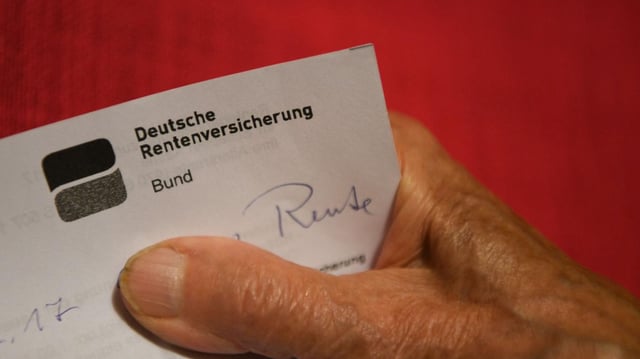 Deutsche
Rentenversicherung
Bund
Rente
cherung
. 17